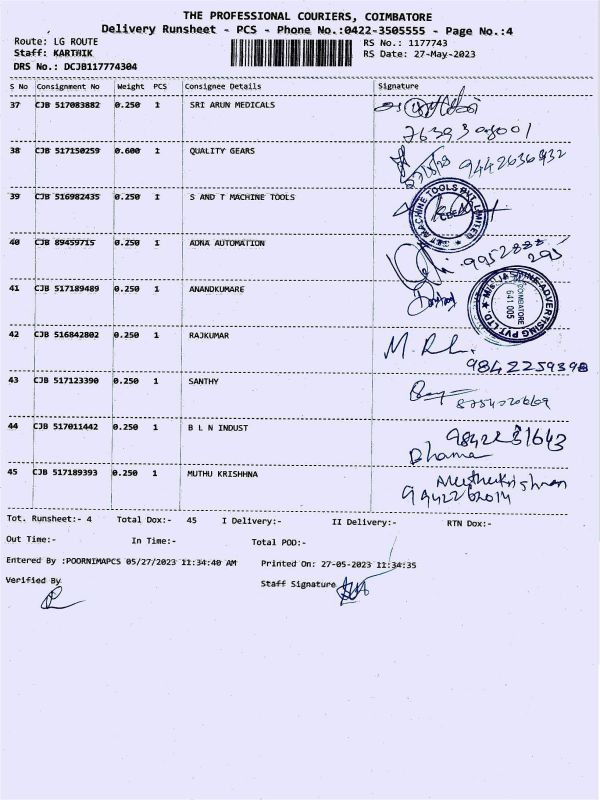 THE PROFESSIONAL COURIERS, COIMBATORE
Delivery Runsheet - PCS - Phone No.:0422-3505555 - Page No.:4
Route: LG ROUTE RS No.: 1177743
Staff: KARTHIK RS Date: 27-May-2023
DRS No.: DCJB117774304
S No Consignment No Weight PCS Consignee Details Signature
37 CJB 517083882 0.250 1 SRI ARUN MEDICALS
38 CJB 517150259 0.600 1 QUALITY GEARS 9442636432
39 CJB 516982435 0.250 1 S AND T MACHINE TOOLS
S&T MACHINE TOOLS PVT. LIMITED
40 CJB 89459715 0.250 1 ADNA AUTOMATION
41 CJB 517189489 0.250 1 ANANDKUMARE
ADVERTISING PVT LTD.
COIMBATORE
641 005
42 CJB 516842802 0.250 1 RAJKUMAR
9842259398
43 CJB 517123390 0.250 1 SANTHY
44 CJB 517011442 0.250 1 B L N INDUST
Dhama
45 CJB 517189393 0.250 1 MUTHU KRISHHNA Muthukrishnan
9442262014
Tot. Runsheet:- 4 Total Dox:- 45 I Delivery:- II Delivery:- RTN Dox:-
Out Time:- In Time:- Total POD:-
Entered By :POORNIMAPCS 05/27/2023 11:34:40 AM Printed On: 27-05-2023 11:34:35
Verified By Staff Signature